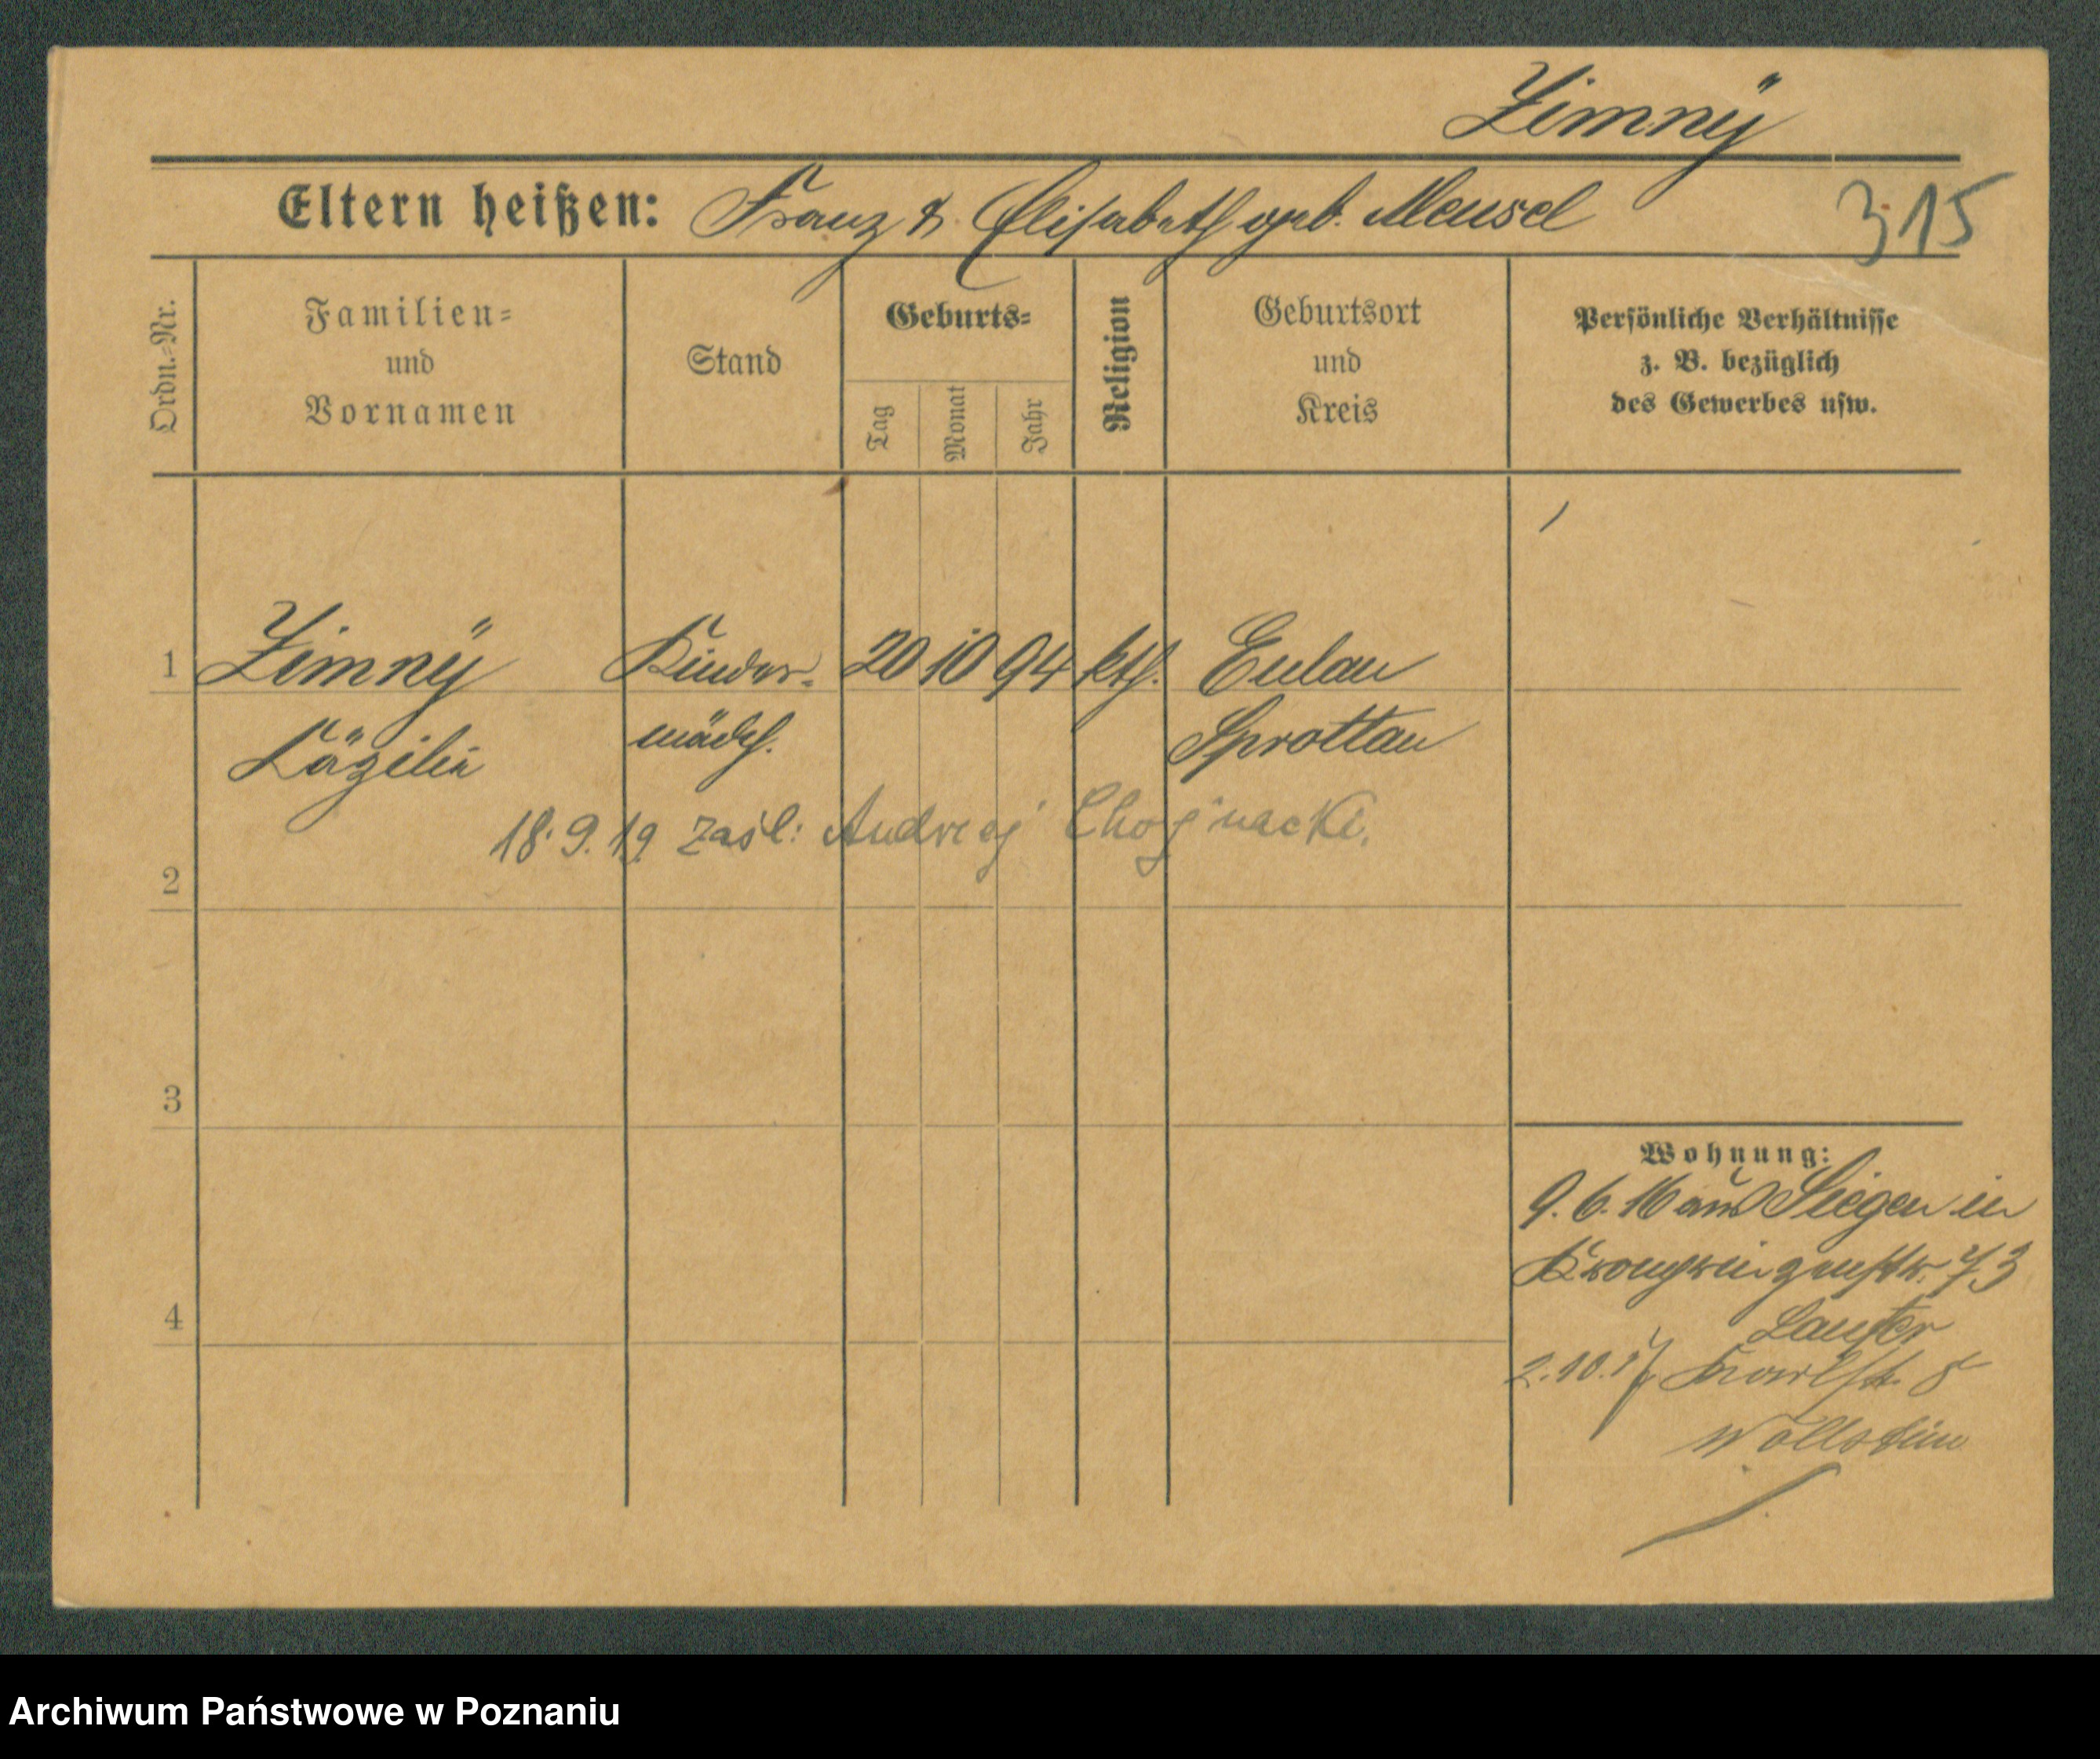 Zimnÿ
Eltern heißen: Franz & Elisabeth geb. Meusel
315
Ordn.-Nr.
Familien-
und
Vornamen
Stand
Geburts-
Tag
Monat
Jahr
Religion
Geburtsort
und
Kreis
Persönliche Verhältnisse
z. B. bezüglich
des Gewerbes usw.
1 Zimnÿ Kinder- 20 10 94 kth. Eulau
Käzilie mädch. Sprottau
18.9.19 zaśl: Andrzej Chojnacki.
2
3
4
Wohnung:
9.6.16 aus Siegen in
Kronprinzenstr. 73
2.10.17 Karlstr. 8
Wollstein
Archiwum Państwowe w Poznaniu